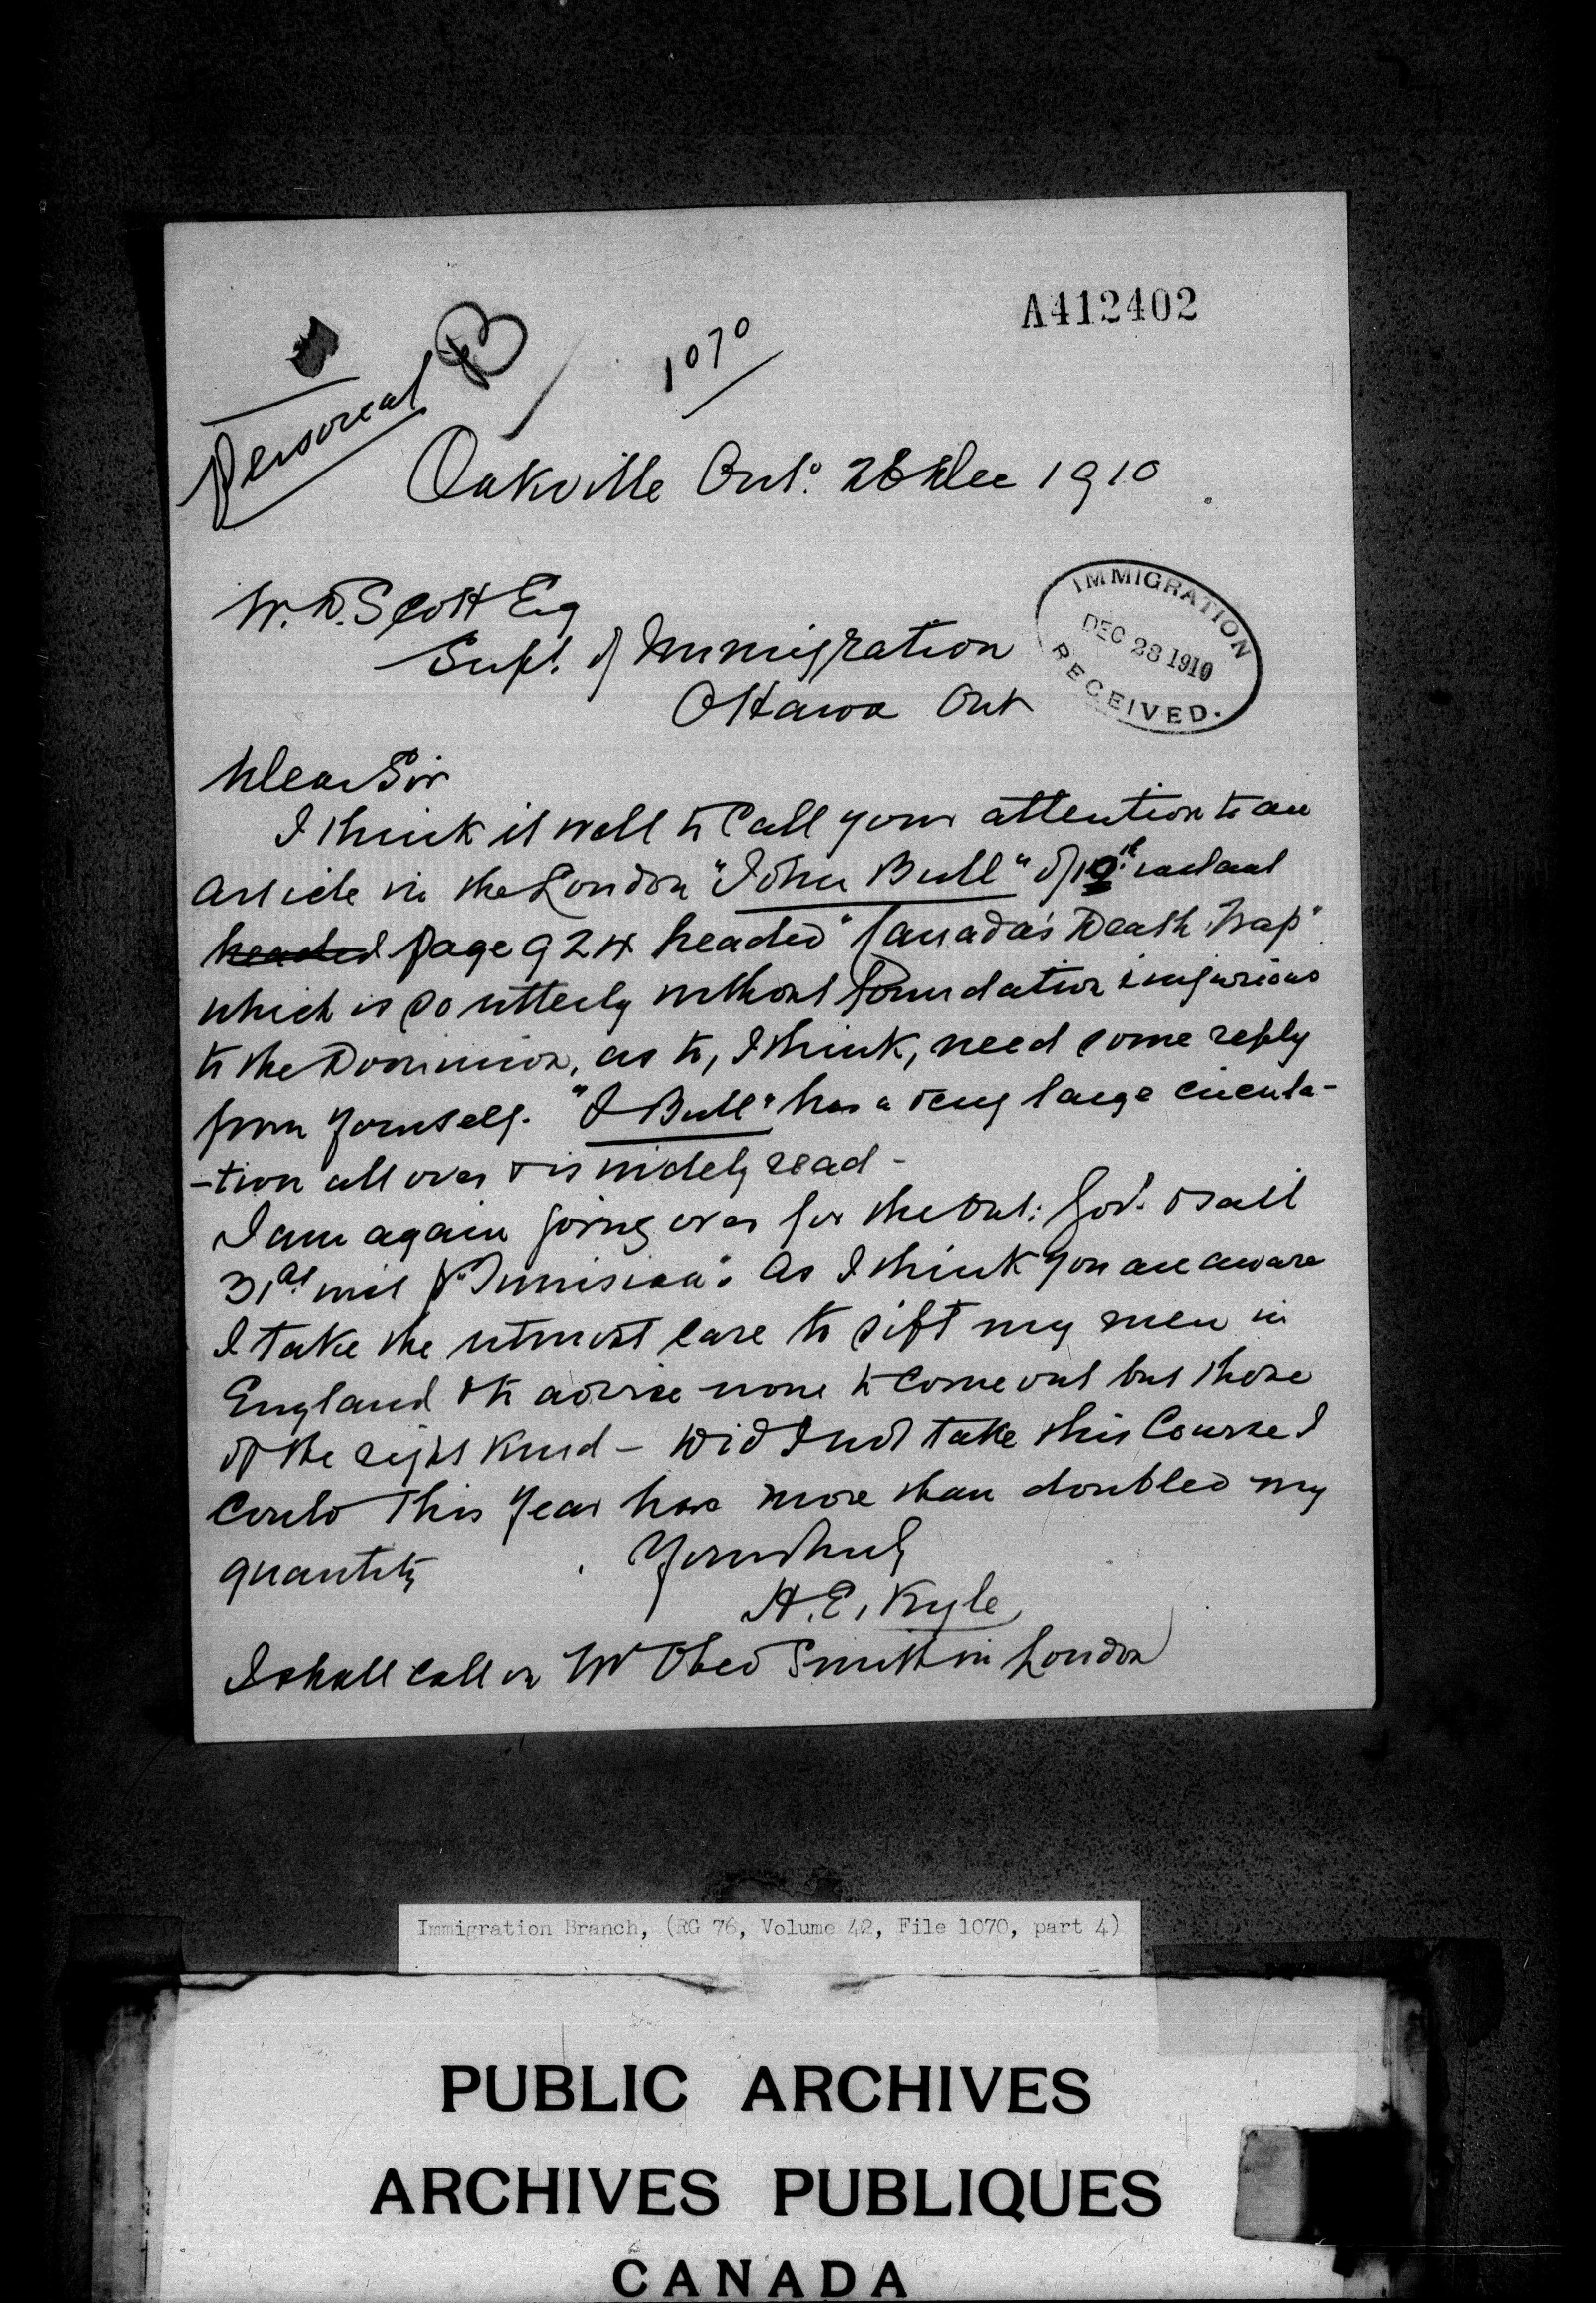 A412402
1070
Personal
Oakville Ont. 26 Dec 1910
W.D. Scott Esq
Supt. of Immigration
Ottawa Ont
IMMIGRATION
DEC 28 1910
RECEIVED.
Dear Sir
I think it well to call your attention to an
article in the London "John Bull" of 10th instant
headed page 924 headed "Canada's Death Trap"
which is so utterly without foundation & injurious
to the Dominion, as to, I think, need some reply
from yourself. "J Bull" has a very large circula-
-tion all over & is widely read -
I am again going over for the Ont: Govt. & sail
31st inst p "Tunisian". As I think you are aware
I take the utmost care to sift my men in
England & to advise none to come out but those
of the right kind - Did I not take this course I
could this year have more than doubled my
quantity
Yours truly
H. E. Kyle
I shall call on Mr Obed Smith in London
Immigration Branch, (RG 76, Volume 42, File 1070, part 4)
PUBLIC ARCHIVES
ARCHIVES PUBLIQUES
CANADA